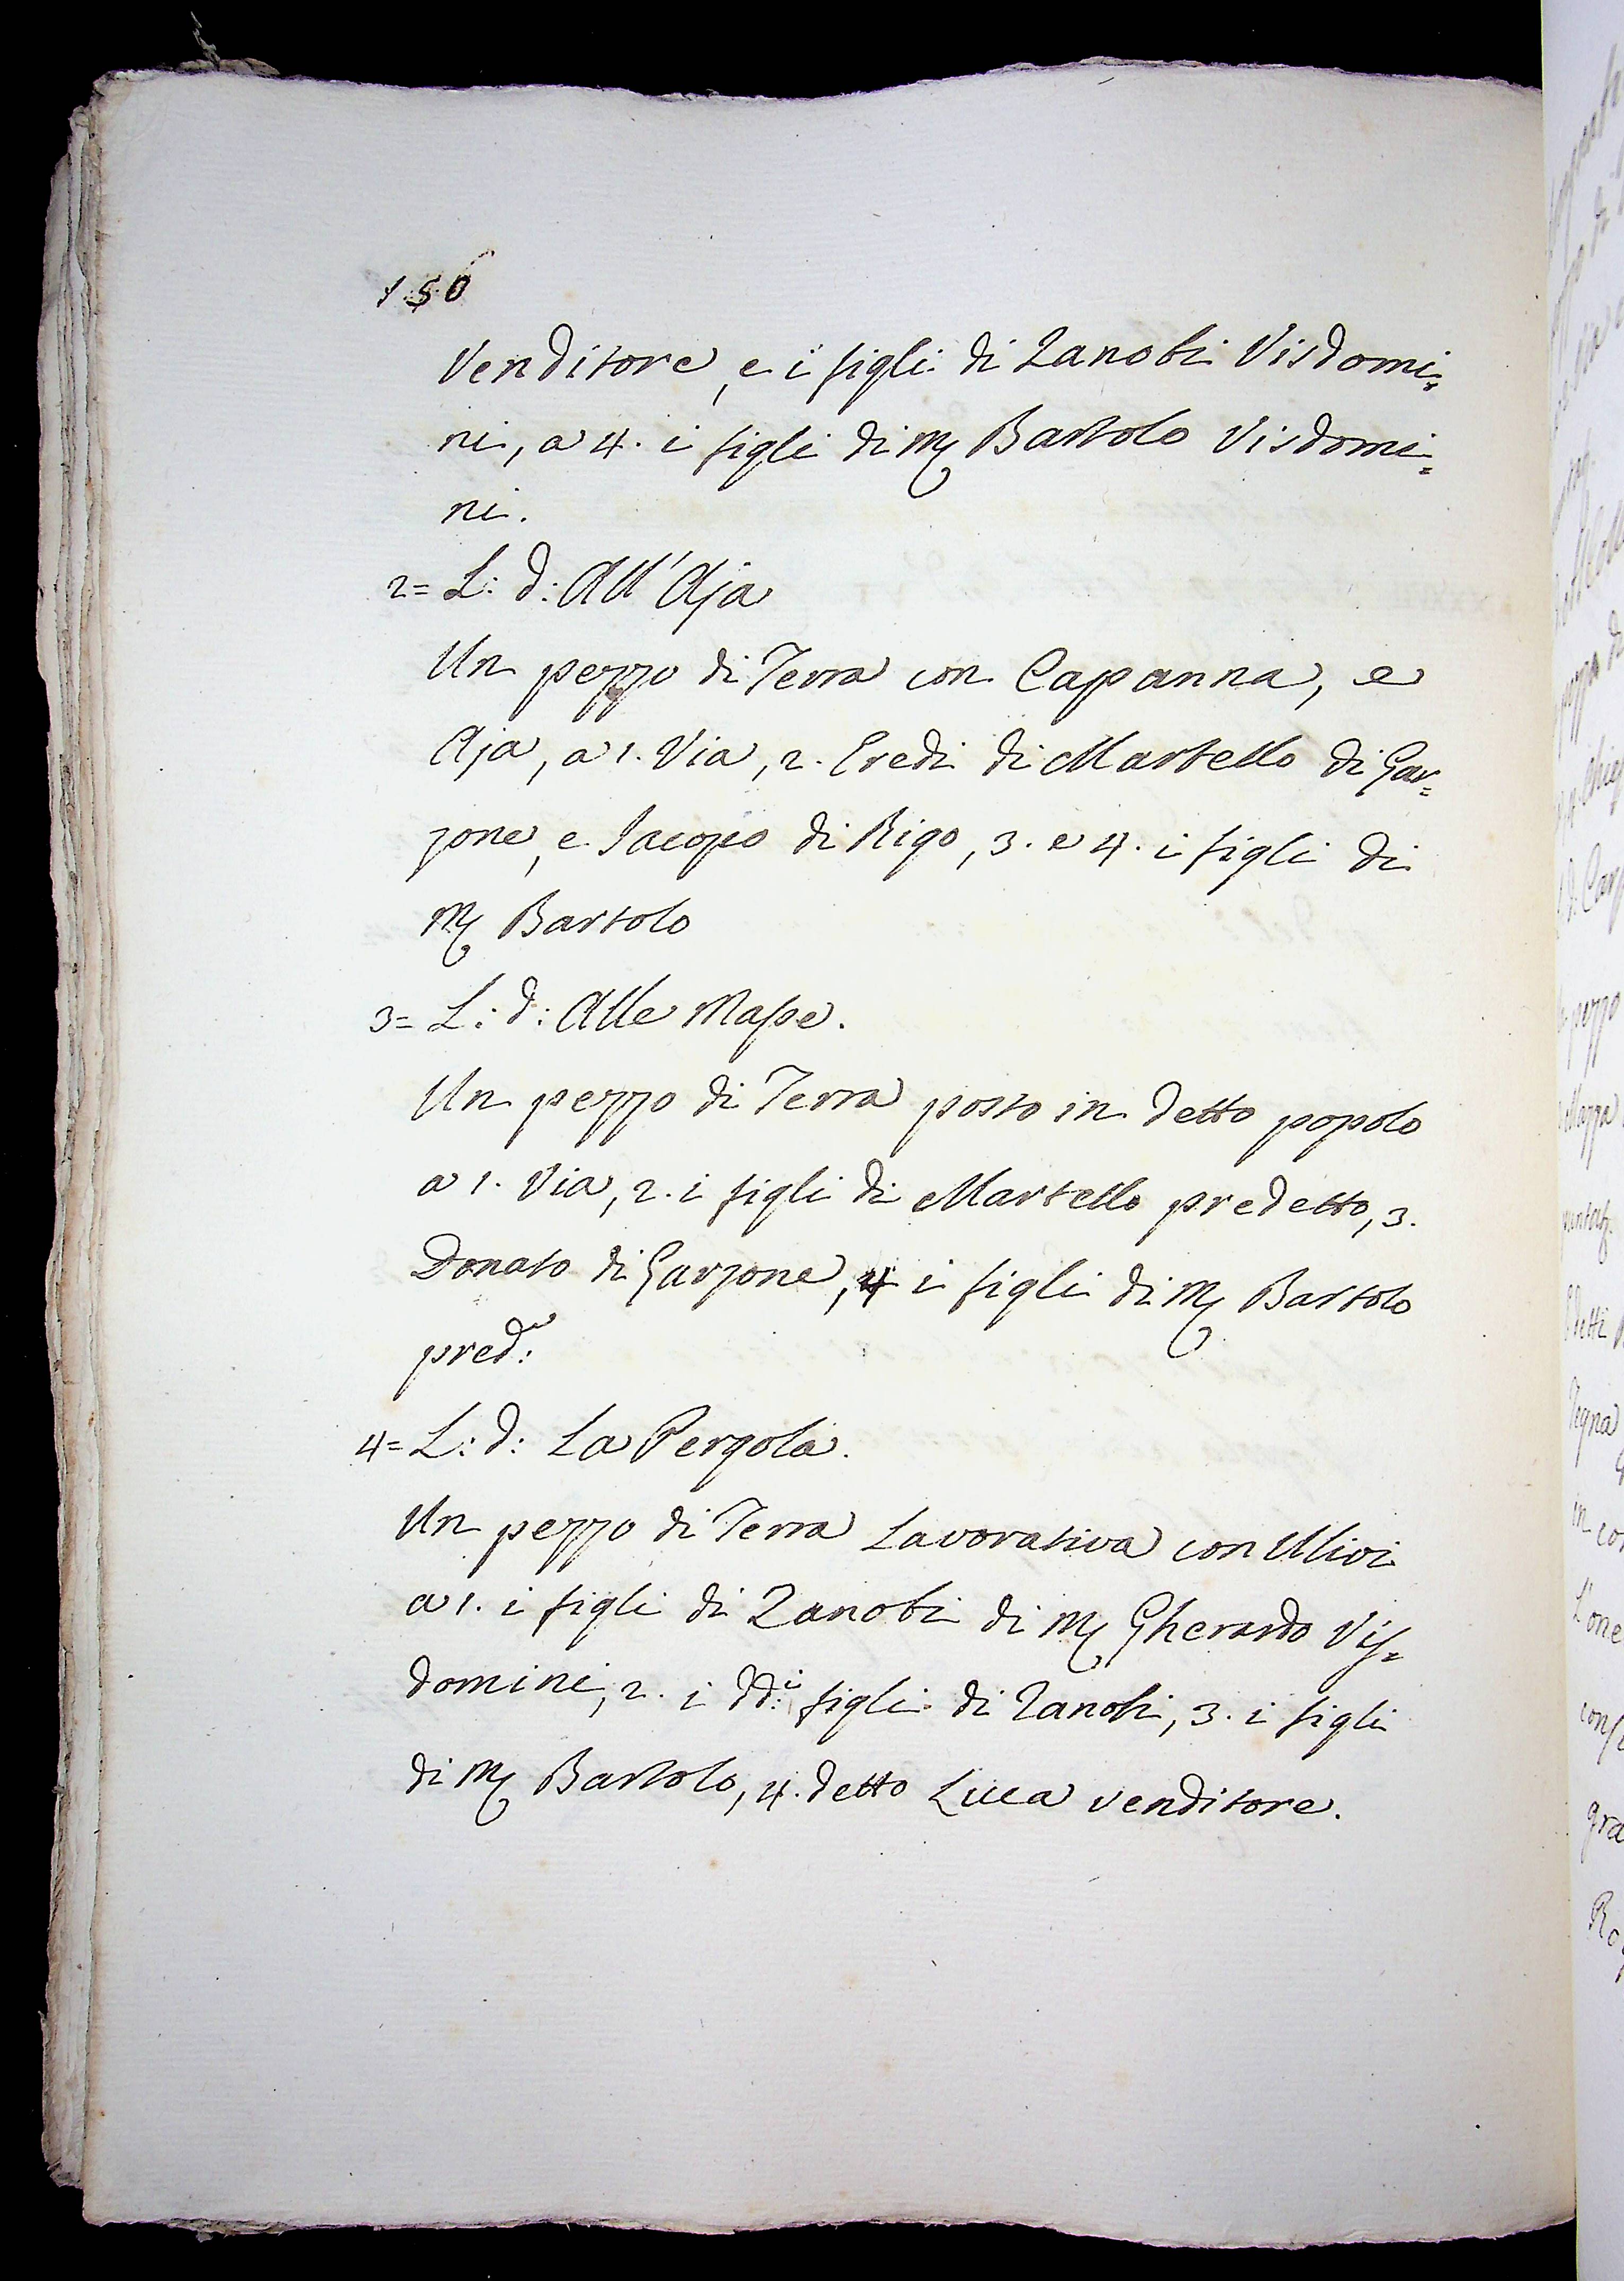 156
Venditore, e i figli di Zanobi Visdomi=
ni, a 4. i figli di M Bartolo Visdomi=
ni.
2= L: d: All'Aja
Un pezzo di Terra con Capanna, e
Aja, a 1. Via, 2. Eredi di Martello di Gar=
zone, e Jacopo di Rigo, 3. e 4. i figli di
M Bartolo
3= L: d: Alle Masse.
Un pezzo di Terra posto in detto popolo
a 1. Via, 2. i figli di Martello predetto, 3.
Donato di Garzone, 4 i figli di M Bartolo
pred:
4= L: d: La Pergola.
Un pezzo di Terra Lavorativa con Ulivi
a 1. i figli di Zanobi di M Gherardo Vis=
domini, 2. i dd:i figli di Zanobi, 3. i figli
di M Bartolo, 4. detto Luca venditore.